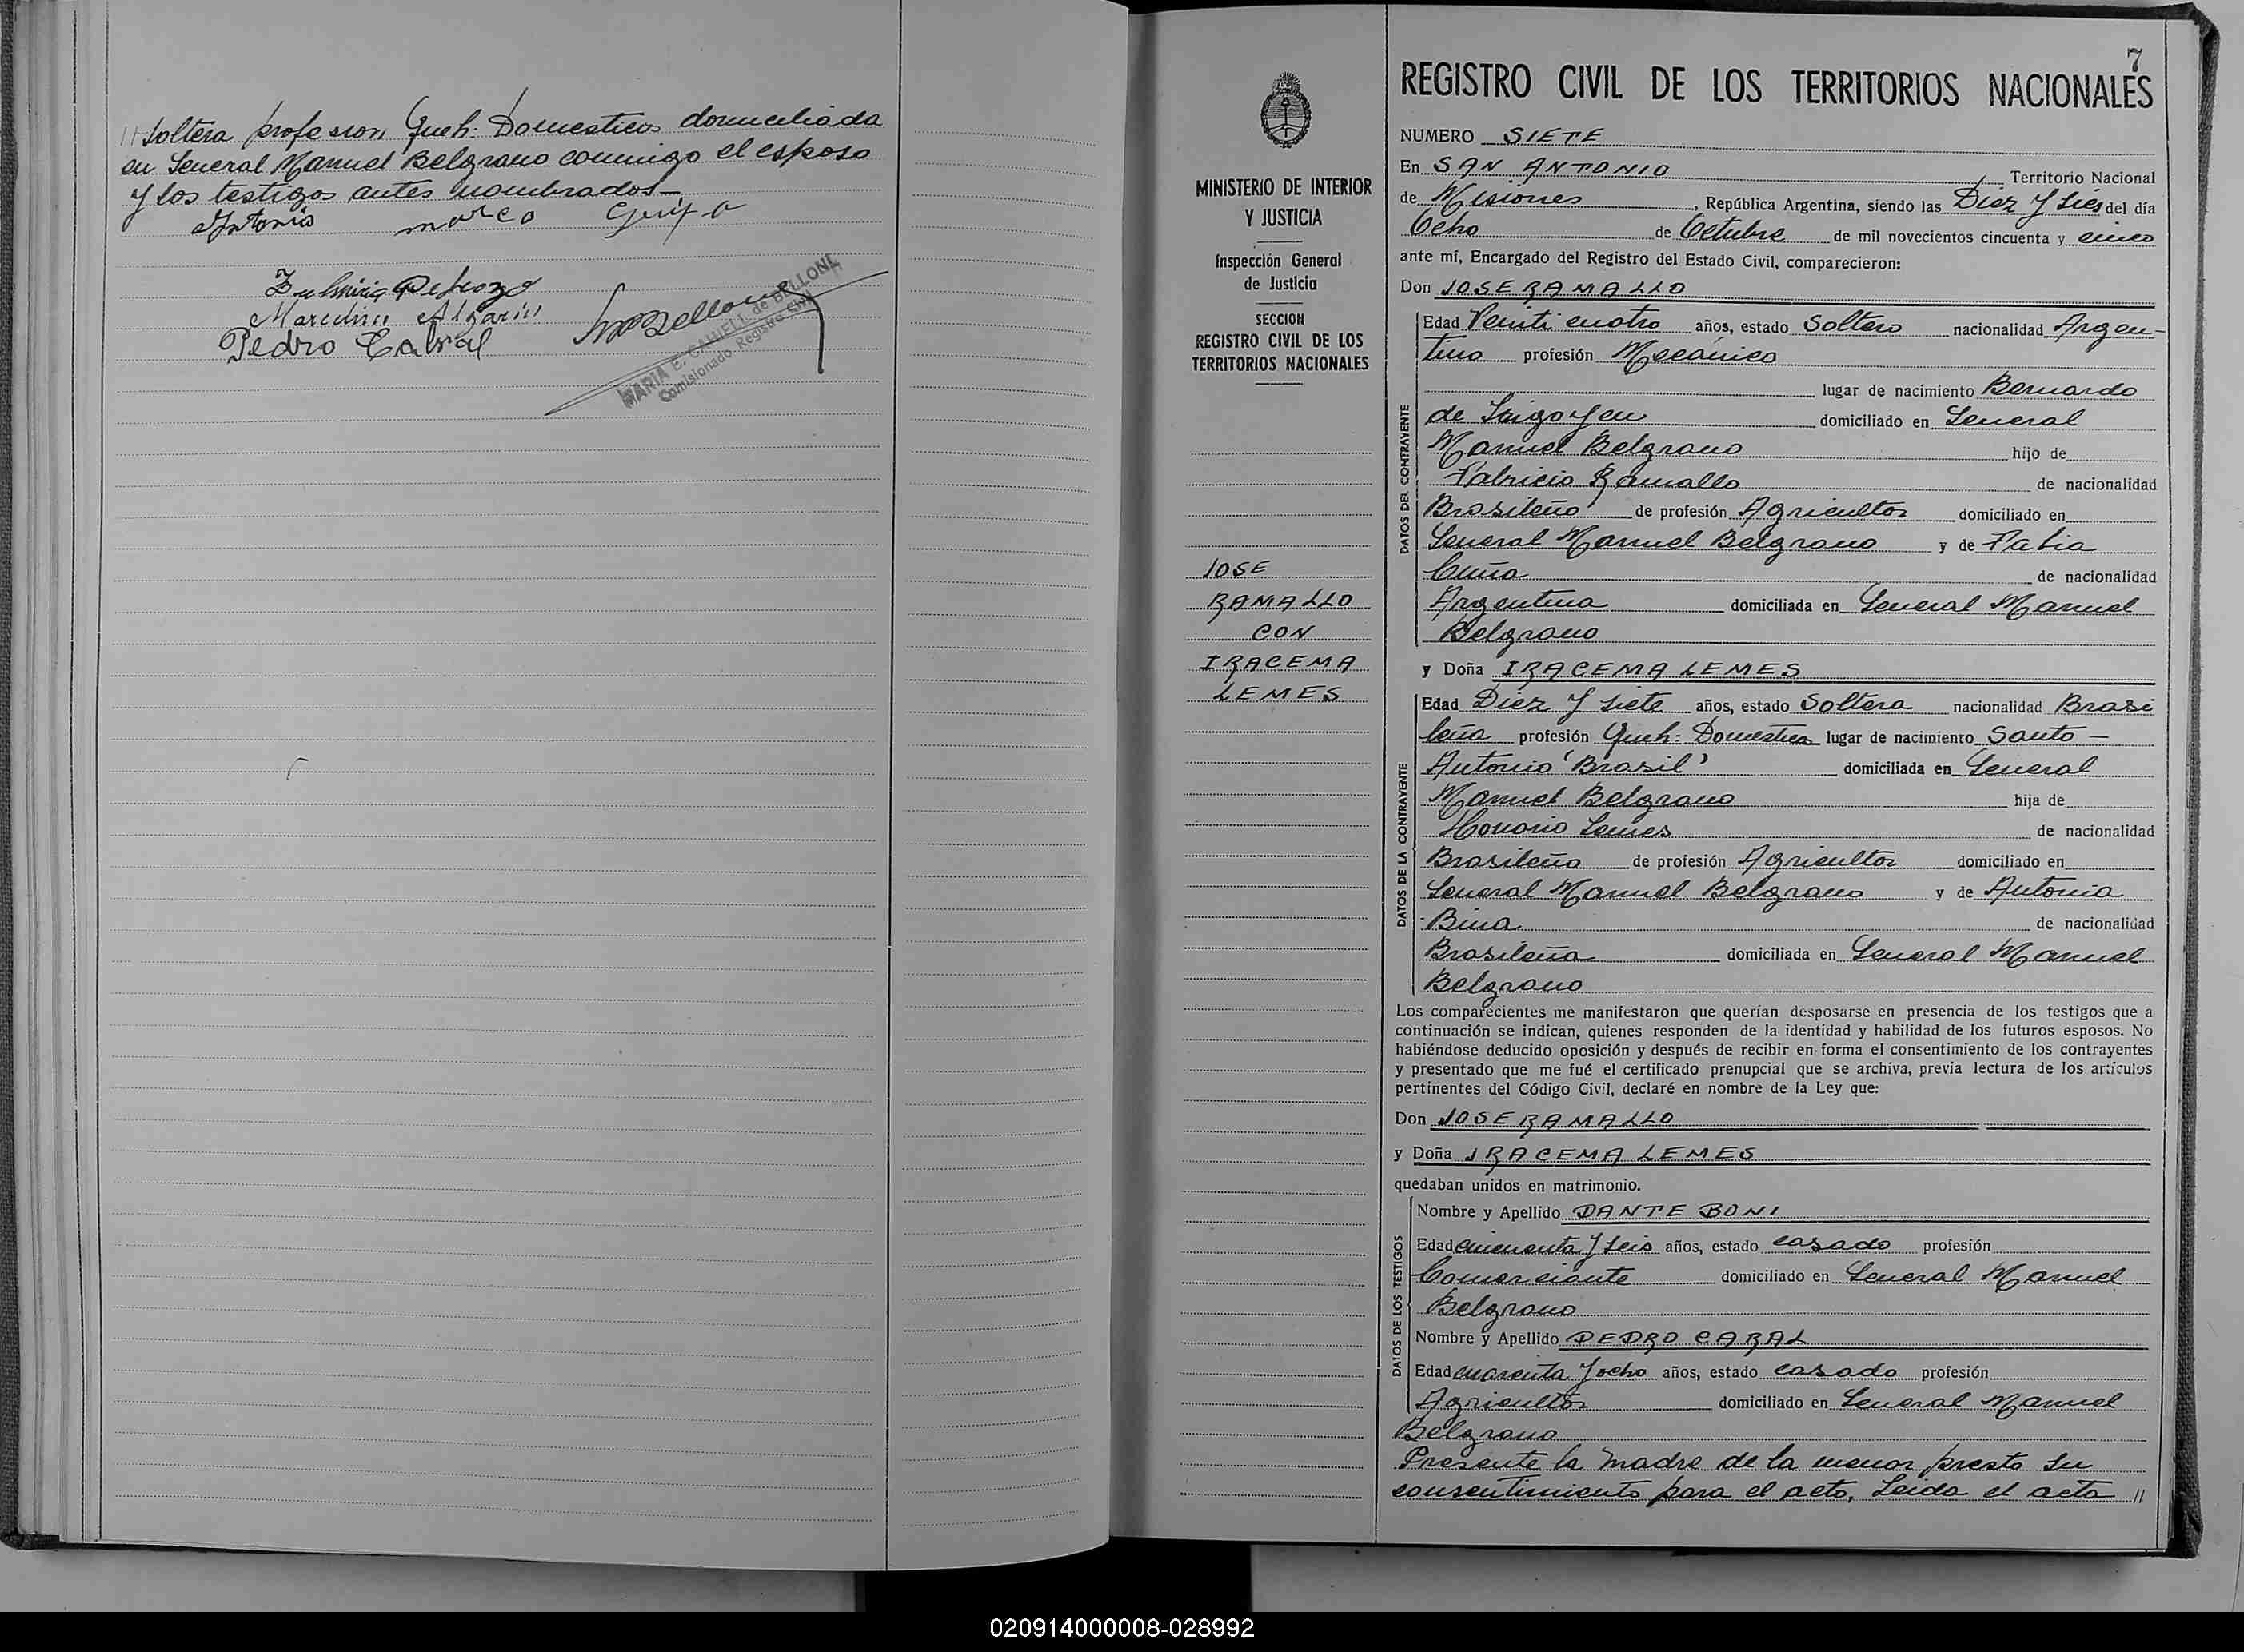 // soltera profesion Queh: Domesticos domiciliada
en General Manuel Belgrano conmigo el esposo
y los testigos antes nombrados—
Antonio marco
Marculina
Pedro Cabral
MARIA E. CAMIELL de BELLONE
Comisionado Registro Civil
MINISTERIO DE INTERIOR
Y JUSTICIA
Inspección General
de Justicia
SECCION
REGISTRO CIVIL DE LOS
TERRITORIOS NACIONALES
JOSE
RAMALLO
CON
IRACEMA
LEMES
7
REGISTRO CIVIL DE LOS TERRITORIOS NACIONALES
NUMERO SIETE
En SAN ANTONIO Territorio Nacional
de Misiones, República Argentina, siendo las Diez y seis del día
Ocho de Octubre de mil novecientos cincuenta y cinco
ante mí, Encargado del Registro del Estado Civil, comparecieron:
Don JOSE RAMALLO
DATOS DEL CONTRAYENTE
Edad Veinti cuatro años, estado Soltero nacionalidad Argen-
tino profesión Mecánico
lugar de nacimiento Bernardo
de Irigoyen domiciliado en General
Manuel Belgrano hijo de
Fabricio Ramallo de nacionalidad
Brasileño de profesión Agricultor domiciliado en
General Manuel Belgrano y de Fabia
Cuña de nacionalidad
Argentina domiciliada en General Manuel
Belgrano
y Doña IRACEMA LEMES
DATOS DE LA CONTRAYENTE
Edad Diez y siete años, estado Soltera nacionalidad Brasi
leña profesión Queh: Domestica lugar de nacimiento Santo—
Antonio 'Brasil' domiciliada en General
Manuel Belgrano hija de
Honorio Lemes de nacionalidad
Brasileña de profesión Agricultor domiciliado en
General Manuel Belgrano y de Antonia
Bina de nacionalidad
Brasileña domiciliada en General Manuel
Belgrano
Los comparecientes me manifestaron que querían desposarse en presencia de los testigos que a
continuación se indican, quienes responden de la identidad y habilidad de los futuros esposos. No
habiéndose deducido oposición y después de recibir en forma el consentimiento de los contrayentes
y presentado que me fué el certificado prenupcial que se archiva, previa lectura de los artículos
pertinentes del Código Civil, declaré en nombre de la Ley que:
Don JOSE RAMALLO
y Doña IRACEMA LEMES
quedaban unidos en matrimonio.
DATOS DE LOS TESTIGOS
Nombre y Apellido DANTE BONI
Edad cincuenta y seis años, estado casado profesión
Comerciante domiciliado en General Manuel
Belgrano
Nombre y Apellido PEDRO CABAL
Edad cuarenta y ocho años, estado casado profesión
Agricultor domiciliado en General Manuel
Belgrano
Presente la madre de la menor presta su
consentimiento para el acto, Leida el acta //
020914000008-028992